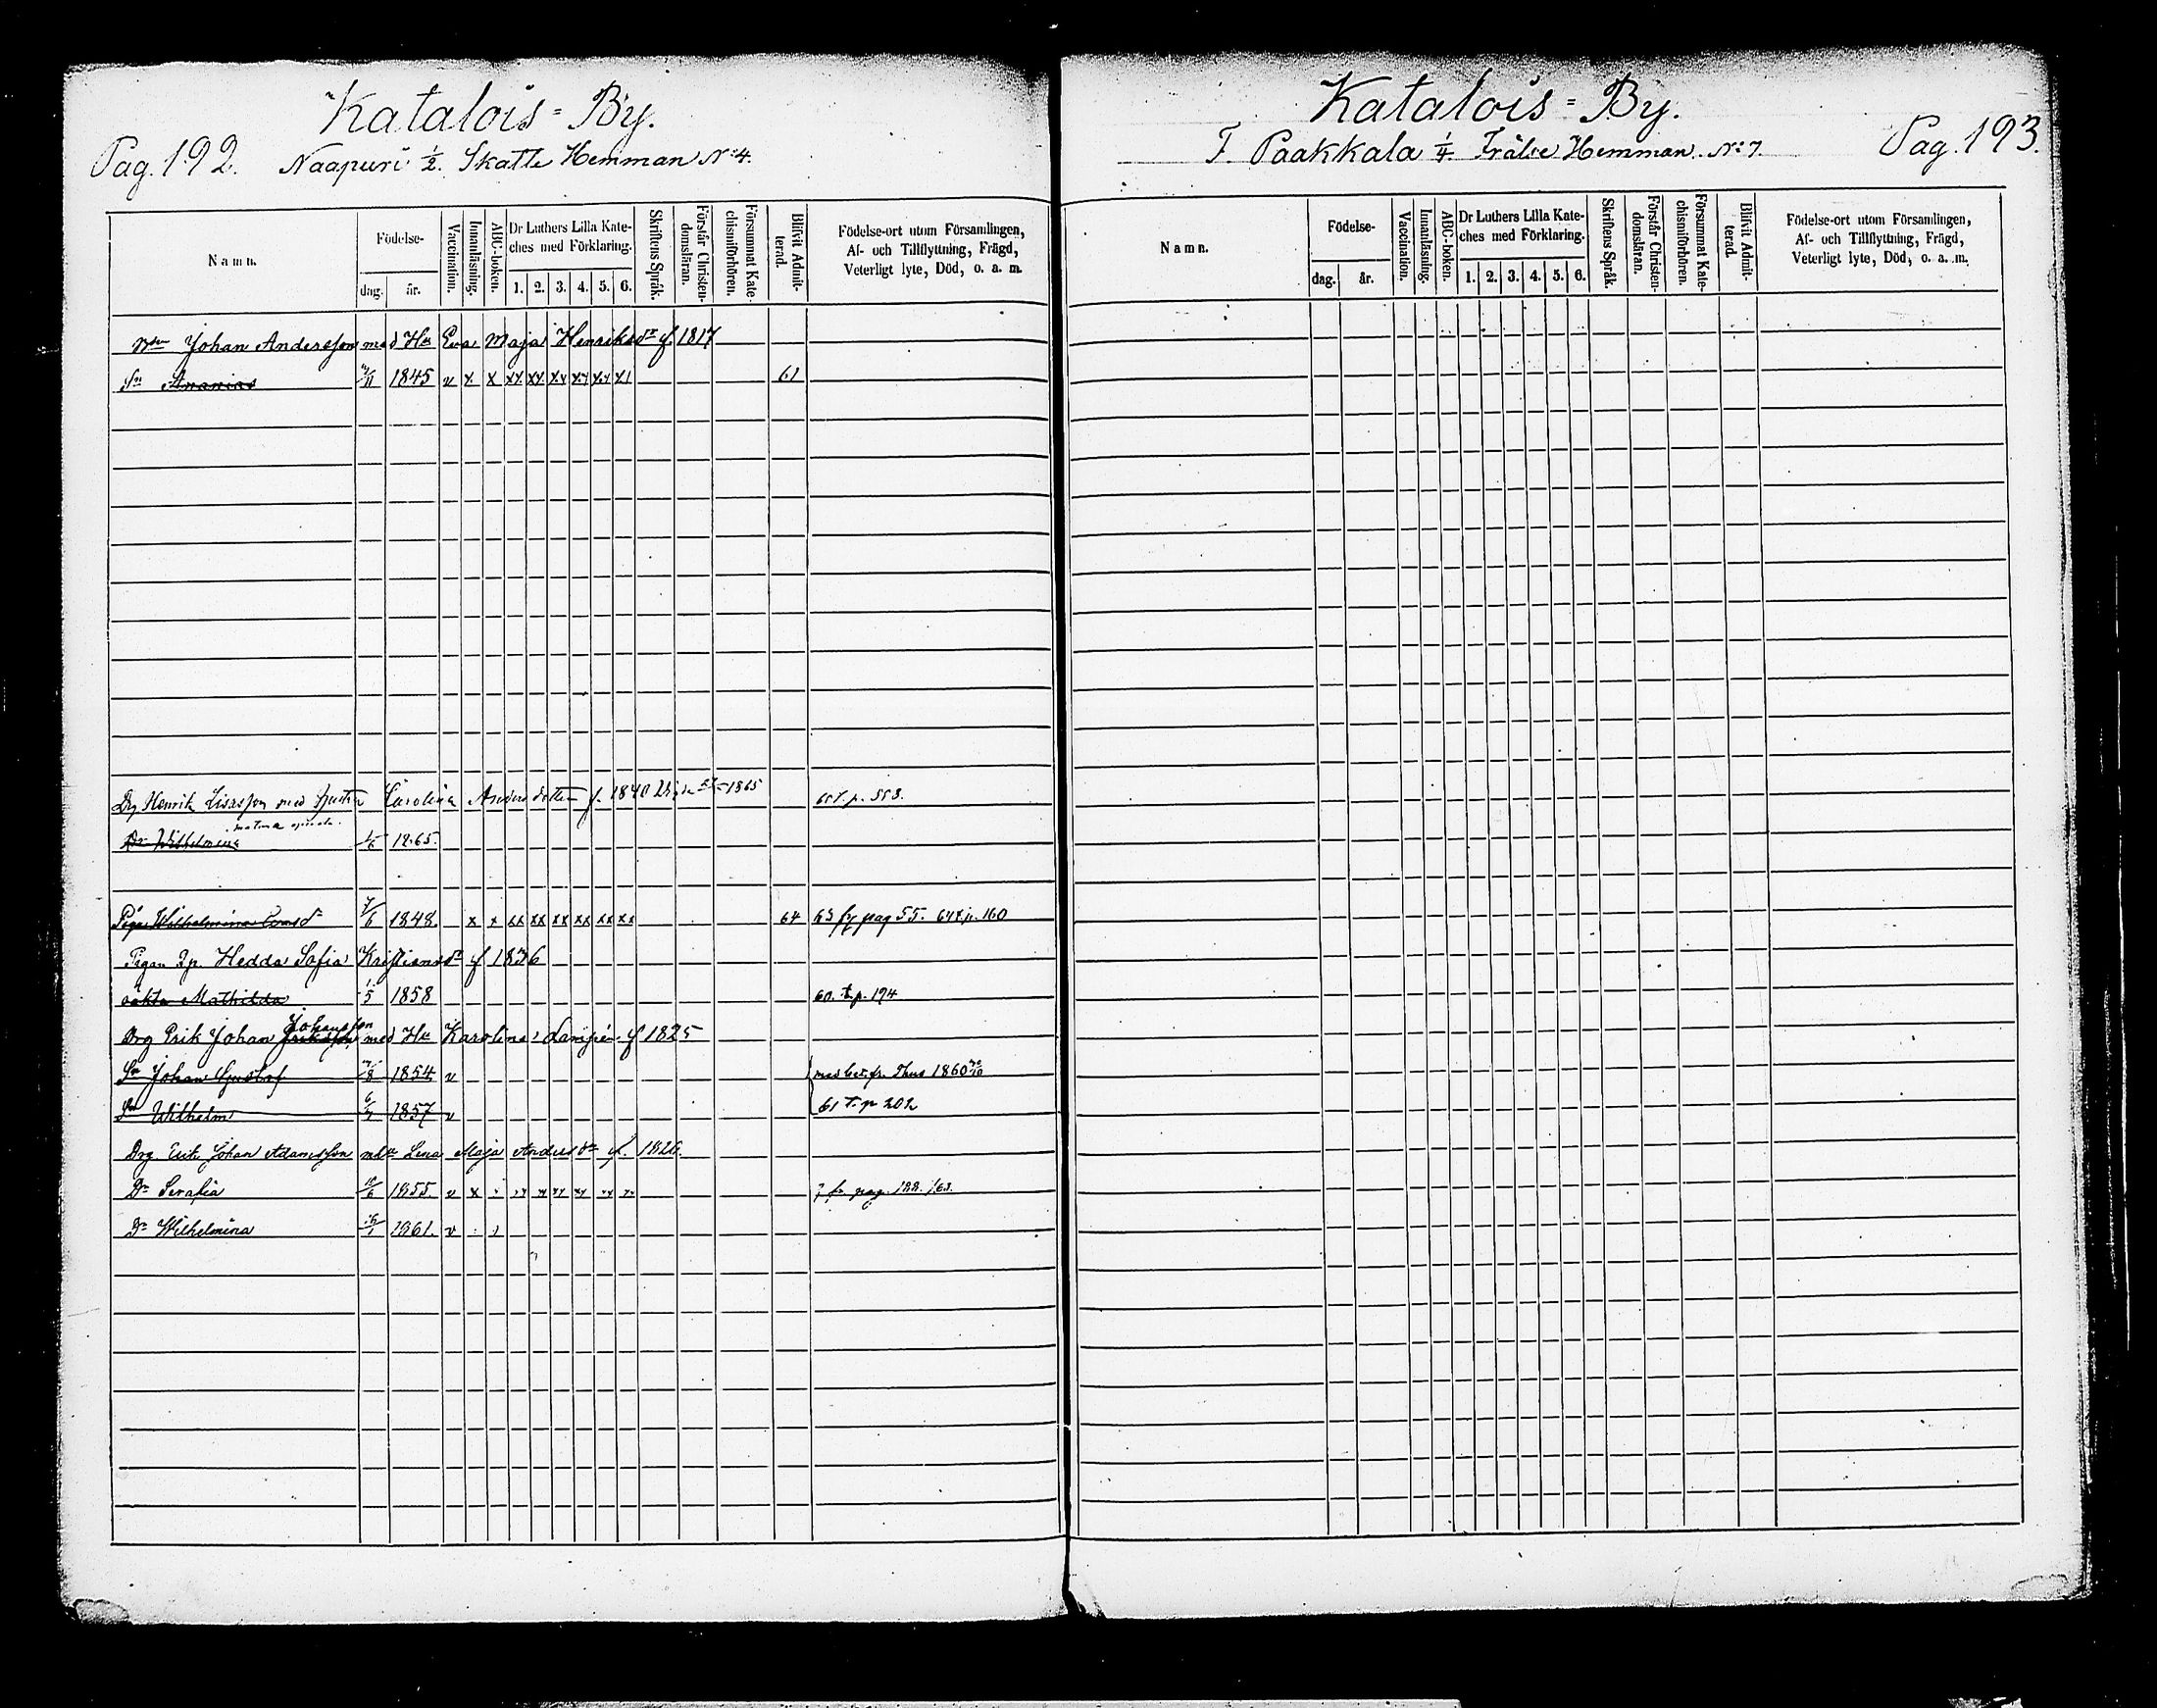 Katalois=By.
Pag. 192. Naapuri 1/2. Skatte Hemman N:4.
Namn.
Födelse-
dag. år.
Vaccination.
Innanläsning.
ABC-boken.
Dr Luthers Lilla Kate-
ches med Förklaring.
1. 2. 3. 4. 5. 6.
Skriftens Språk.
Förstår Christen-
domsläran.
Försummat Kate-
chismiförhören.
Blifvit Admit-
terad.
Födelse-ort utom Församlingen,
Af- och Tillflyttning, Frägd,
Veterligt lyte, Död, o. a. m.
Johan Andersson med Hu Eva Maja Henriksdr f. 1817
Sn Ananias /11 1845 v x x xx xx xx xx xx x 61
Drg Henrik med hustru Carolina Anders dotter f. 1840 1865 65 t. p. 553.
Dr Wilhelmina 1/6 1865.
Pigan Wilhelmina 7/6 1848. x x xx xx xx xx xx xx 64 63 fr pag 55. 64 t. p. 160
Pigan Hedda Sofia Kristiansdr f 1836
oäkta Mathilda 1/5 1858 60. t. p. 194
Johansson
Drg Erik Johan Eriksson med Hu Karolina Lampén f 1825
Sn Johan Gustaf /8 1854 v med bet. fr. Thus 1860
Sn Wilhelm 6/ 1857 v 61 t. p 202
Drg. Erik Johan Adamsson Lena Maja Andersdr f. 1826
Dr Serafia /6 1855. v x fr pag. 188. 163.
Dr Wilhelmina 1861. v
Katalois=By.
T. Paakkala 1/4. Frälse Hemman. N:7. Pag. 193.
Namn.
Födelse-
dag. år.
Vaccination.
Innanläsning.
ABC-boken.
Dr Luthers Lilla Kate-
ches med Förklaring.
1. 2. 3. 4. 5. 6.
Skriftens Språk.
Förstår Christen-
domsläran.
Försummat Kate-
chismiförhören.
Blifvit Admit-
terad.
Födelse-ort utom Församlingen,
Af- och Tillflyttning, Frägd,
Veterligt lyte, Död, o. a. m.